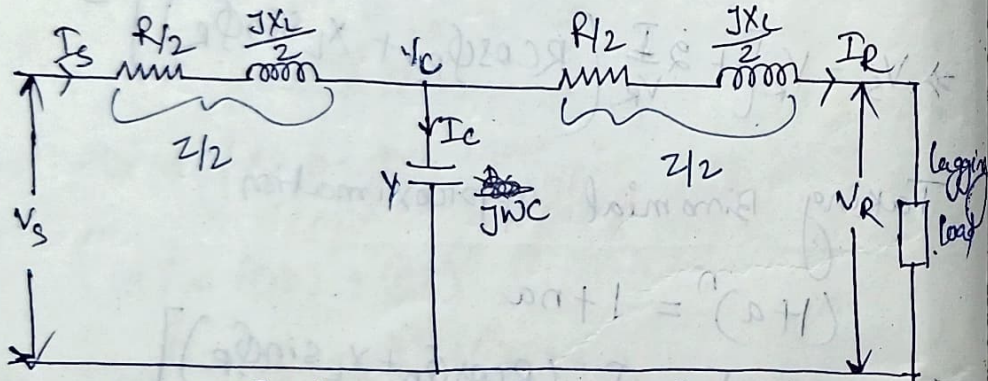 Is R/2 JXL/2 Vc R/2 JXL/2 IR
Z/2 Ic Z/2
Y JWC
Vs VR lagging
load